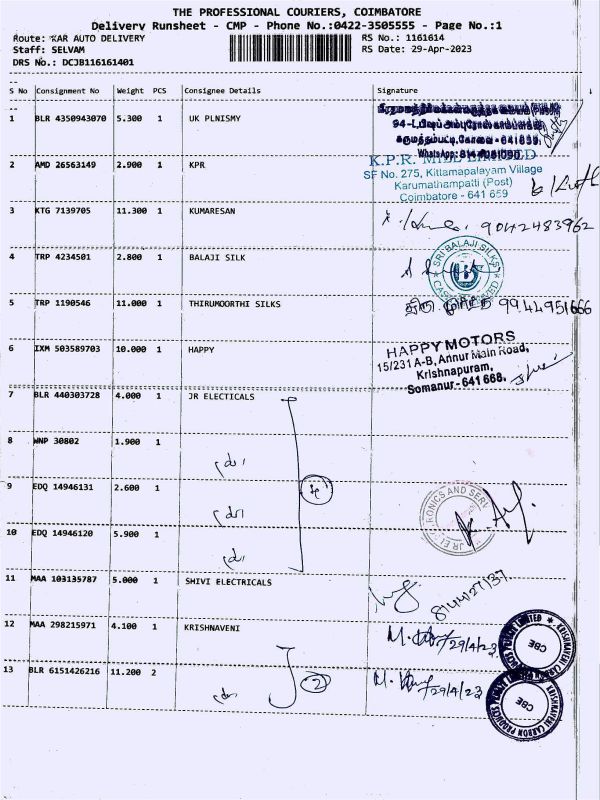 THE PROFESSIONAL COURIERS, COIMBATORE
Delivery Runsheet - CMP - Phone No.:0422-3505555 - Page No.:1
Route: KAR AUTO DELIVERY
RS No.: 1161614
Staff: SELVAM
RS Date: 29-Apr-2023
DRS No.: DCJB116161401
S No Consignment No Weight PCS Consignee Details Signature
1 BLR 4350943070 5.300 1 UK PLNISMY
2 AMD 26563149 2.900 1 KPR
K.P.R. MILL LIMITED
SF No. 275, Kittamapalayam Village
Karumathampatti (Post)
Coimbatore - 641 659
3 KTG 7139705 11.300 1 KUMARESAN
9042483962
4 TRP 4234501 2.800 1 BALAJI SILK
SRI BALAJI SILKS
5 TRP 1190546 11.000 1 THIRUMOORTHI SILKS
9944951666
6 IXM 503589703 10.000 1 HAPPY
HAPPY MOTORS
15/231 A-B, Annur Main Road,
Krishnapuram,
Somanur - 641 668.
7 BLR 440303728 4.000 1 JR ELECTICALS
8 WNP 30802 1.900 1
9 EDQ 14946131 2.600 1
10 EDQ 14946120 5.900 1
11 MAA 103135787 5.000 1 SHIVI ELECTRICALS
8144027137
12 MAA 298215971 4.100 1 KRISHNAVENI
29/4/23
13 BLR 6151426216 11.200 2
2
29/4/23
KRISHNAVENI CARBON PRODUCTS PRIVATE LIMITED
CBE
KRISHNAVENI CARBON PRODUCTS PRIVATE LIMITED
CBE